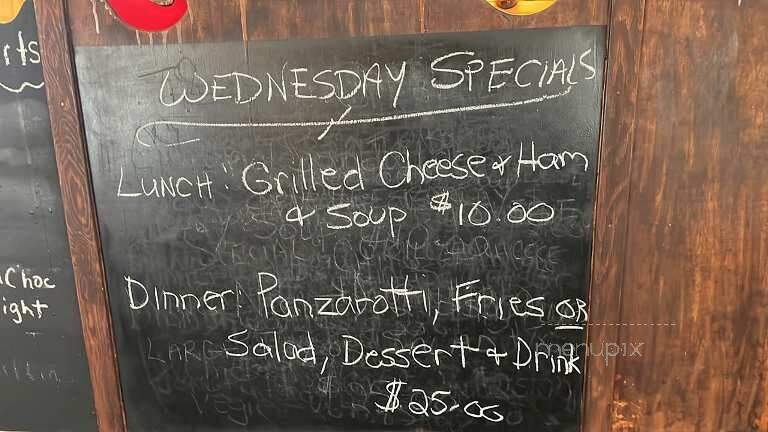 WEDNESDAY SPECIALS
LUNCH: Grilled Cheese & Ham
& Soup $10.00
Dinner: Panzarotti, Fries OR
Salad, Dessert & Drink
$25.00
rts
Choc
ight
menupix